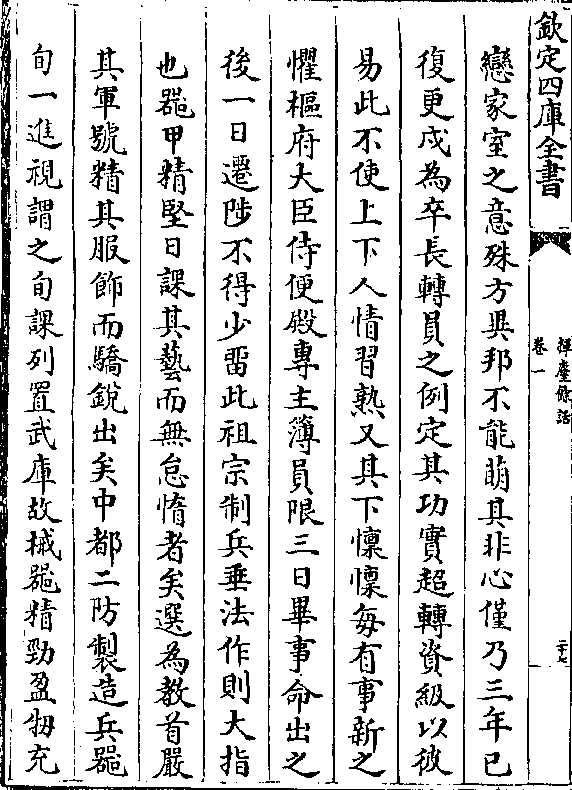 欽定四庫全書
揮麈餘話
卷一
二十七
戀家室之意殊方異邦不能萌其非心僅乃三年已
復更戍為卒長轉員之例定其功實超轉資級以彼
易此不使上下人情習熟又其下懍懍每有事新之
懼樞府大臣侍便殿專主簿員限三日畢事命出之
後一日遷陟不得少畱此祖宗制兵垂法作則大指
也器甲精堅日課其藝而無怠惰者矣選為教首嚴
其軍號精其服飾而驕銳出矣中都二防製造兵器
旬一進視謂之旬課列置武庫故械器精勁盈牣充